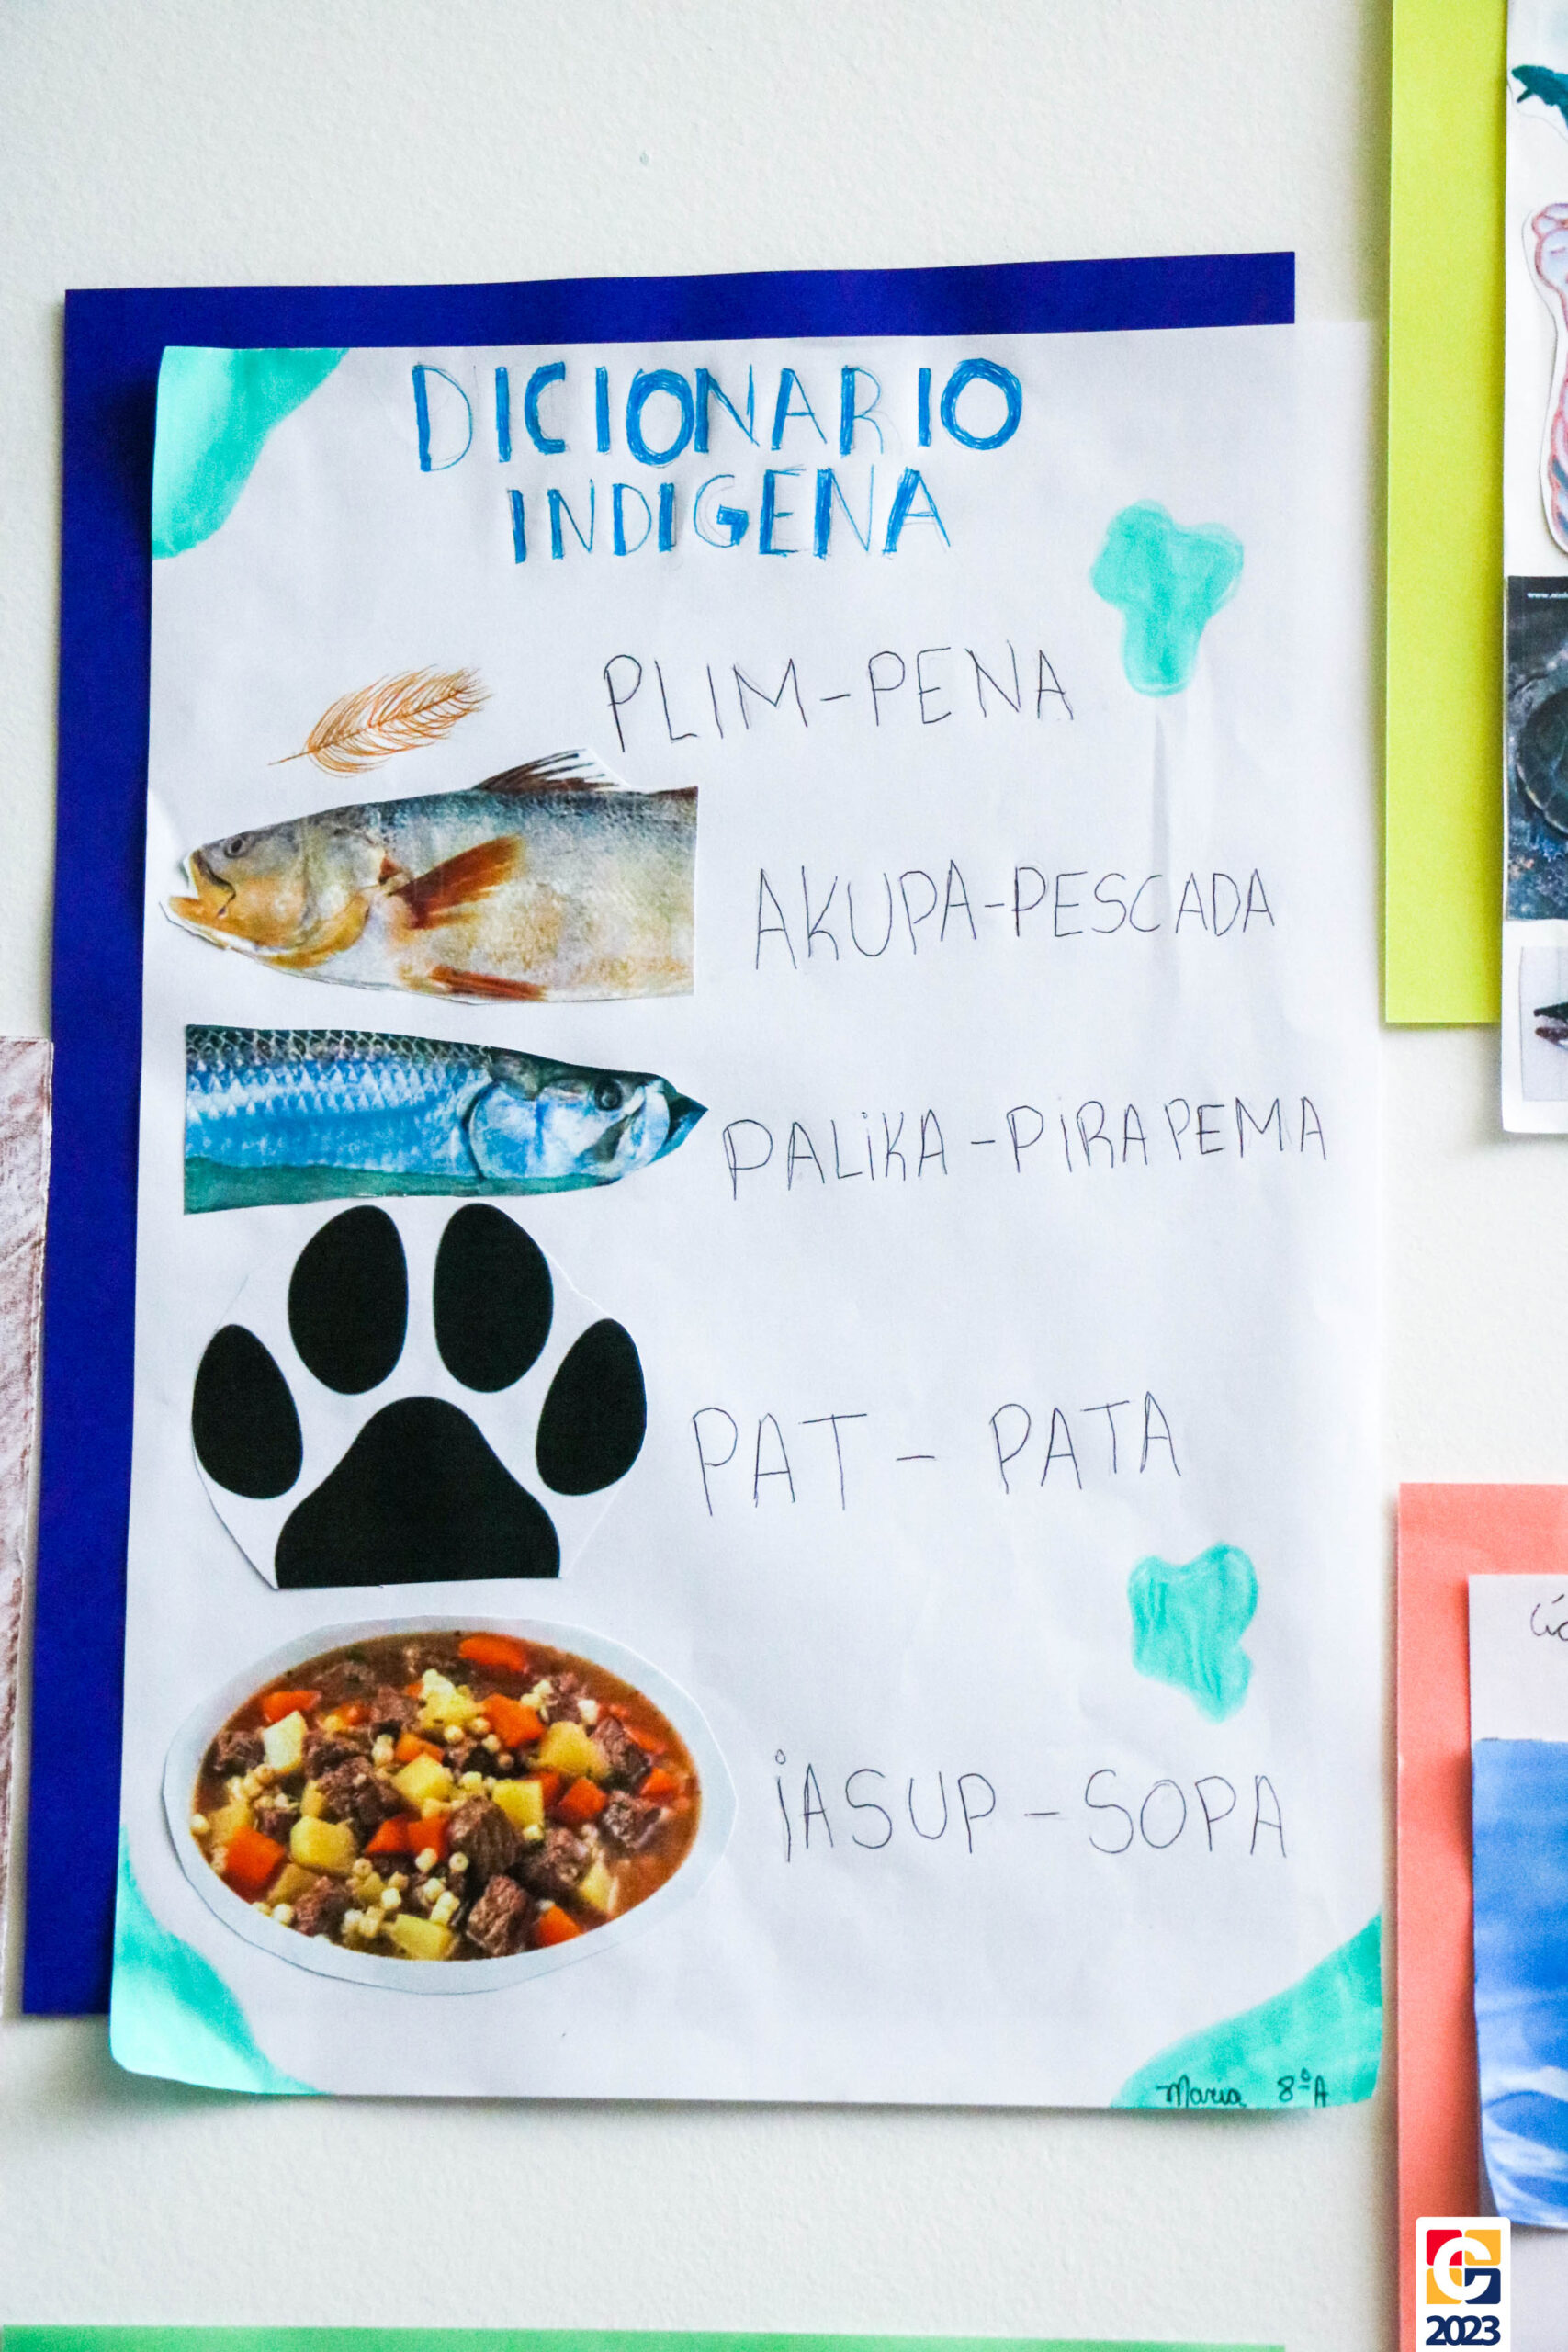 DICIONARIO
INDIGENA
PLIM-PENA
AKUPA-PESCADA
PALiKA-PiRAPEMA
PAT - PATA
iASUP-SOPA
Maria 8ºA
2023